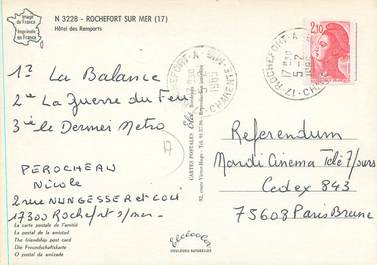 Image de France
Imprimée en France
N 3228 - ROCHEFORT SUR MER (17)
Hôtel des Remparts
2,10
17-ROCHEFORT-A
17 H30
5-2
1985
1º La Balance
2º La Guerre du Feu
3º le Dernier Metro
17
PEROCHEAU
Nicole
2 rue NUNGESSER et COLI
17300 Rochefort s/mer
La carte postale de l'amitié
La postal de la amistad
The friendship post card
Die Freundschaftskarte
O postal da amizade
CARTES POSTALES
Referendum
Mardi Cinema Télé 7/Jours
Cedex 843
75608 Paris Brune
Elcécolor
COULEURS NATURELLES